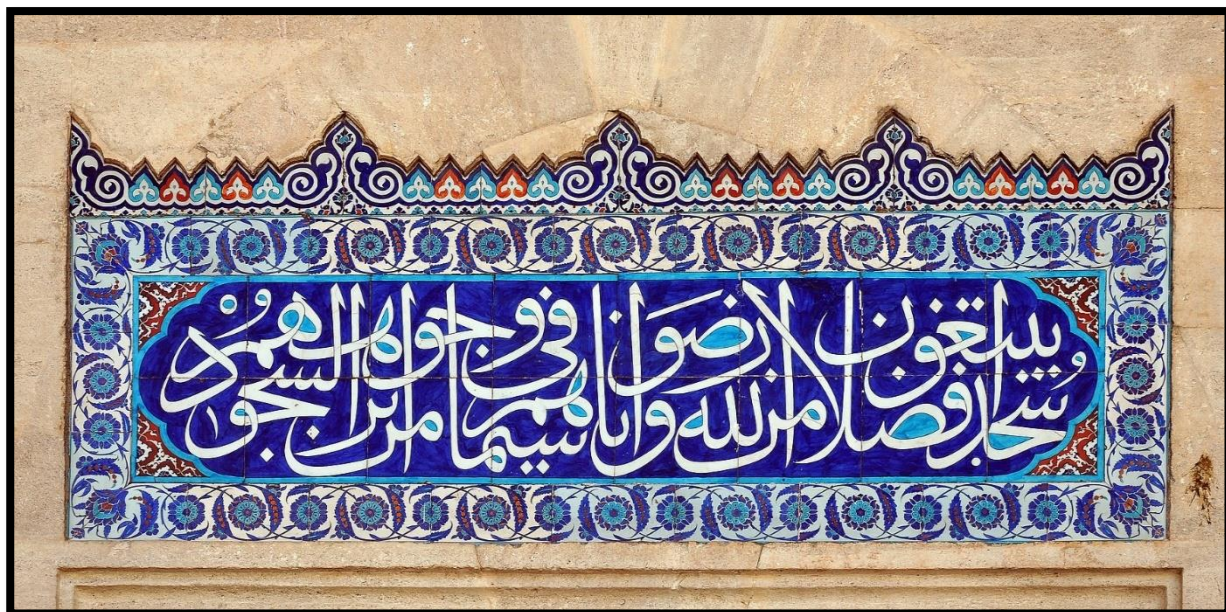 سجدا يبتغون فضلا من الله ورضوانا سيماهم في وجوههم من اثر السجود